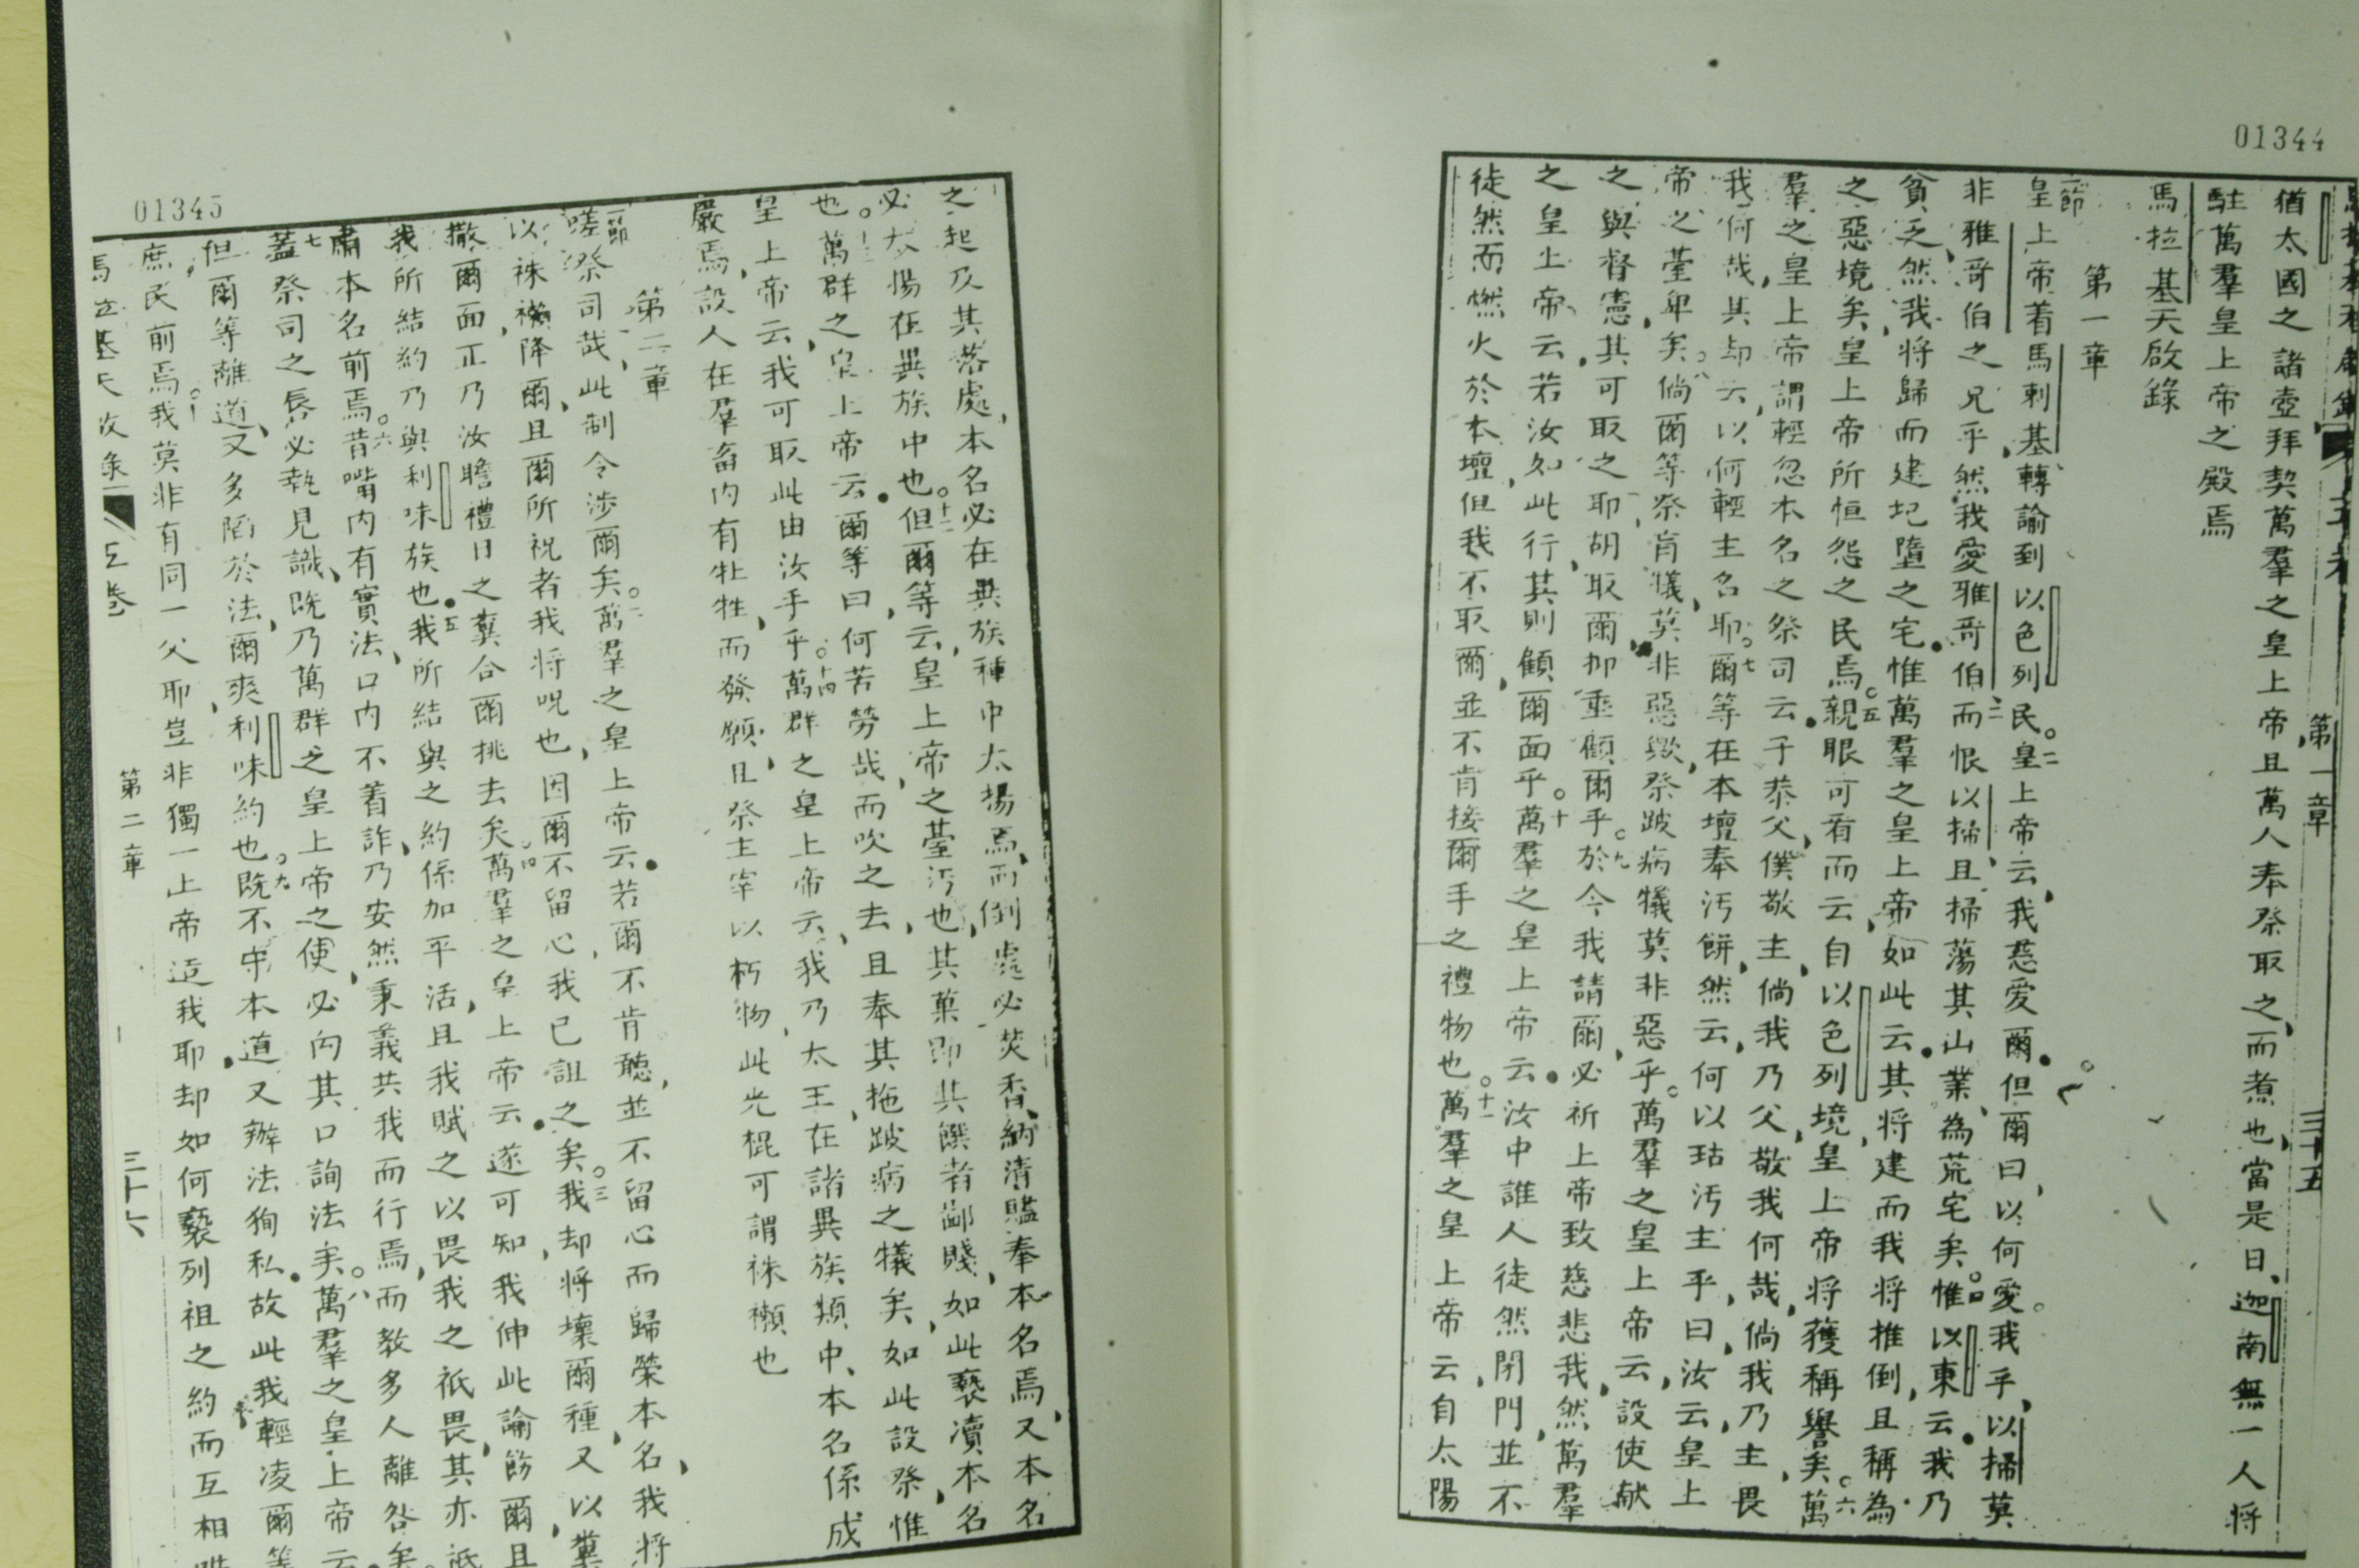 01344
第一章
三十五
猶太國之諸壺拜契萬羣之皇上帝且萬人奉祭取之而煮也當是日迦南無一人將
駐萬羣皇上帝之殿焉
馬拉基天啟錄
第一章
一節皇上帝着馬剌基轉諭到以色列民。二皇上帝云、我慈愛爾但爾曰、以何愛我乎、以掃莫
非雅哥伯之兄乎、然我愛雅哥伯、三而恨以掃、且掃蕩其山業、為荒宅矣。四惟以東云、我乃
貧乏、然我將歸而建圮墮之宅、惟萬羣之皇上帝如此云、其將建而我將推倒、且稱為
之惡境矣、皇上帝所恒怨之民焉。五親眼可看而云、自以色列境、皇上帝將獲稱譽矣。六萬
羣之皇上帝謂輕忽本名之祭司云、子恭父、僕敬主、倘我乃父、敬我何哉、倘我乃主、畏
我何哉、其却云、以何輕主名耶。七爾等在本壇奉汚餅、然云、何以玷汚主乎、曰、汝云、皇上
帝之臺卑矣。八倘爾等祭盲犧、莫非惡歟、祭跛病犧、莫非惡乎。萬羣之皇上帝云、設使献
之與督憲、其可取之耶、胡取爾抑垂顧爾乎。九於今我請爾、必祈上帝致慈悲我、然萬羣
之皇上帝云、若汝如此行、其則顧爾面乎。十萬羣之皇上帝云、汝中誰人徒然閉門、並不
徒然而燃火於本壇、但我不取爾、並不肯接爾手之禮物也。十一萬羣之皇上帝云、自太陽
01345
之起及其落處、本名必在異族種中太揚焉、而倒處必焚香、納清賮奉本名焉、又本名
必太揚在異族中也。十二但爾等云、皇上帝之臺汚也、其菓即其饌者鄙賤、如此褻瀆本名
也。萬群之皇上帝云、爾等曰、何苦勞哉、而吹之去、且奉其拖跛病之犧矣、如此設祭、惟
皇上帝云、我可取此由汝手乎。十四萬群之皇上帝云、我乃太王、在諸異族類中、本名係成
嚴焉、設人在羣畜内有牡牲、而發願、且祭主宰以朽物、此光棍可謂祩襰也
第二章
一節嗟祭司哉、此制令涉爾矣。二萬羣之皇上帝云、若爾不肯聽、並不留心而歸榮本名、我將
以祩襰降爾、且爾所祝者我將呪也、因爾不留心、我已詛之矣。三我却將壞爾種、又以糞
撒爾面、正乃汝瞻禮日之糞、合爾挑去矣。四萬羣之皇上帝云、遂可知我伸此諭飭爾、且
我所結約乃與利味族也。五我所結與之約、係加平活、且我賦之以畏我之祇畏、其亦祇
肅本名前焉。六昔嘴内有實法、口内不着詐、乃安然秉義共我而行焉、而教多人離咎矣
七蓋祭司之唇必執見識、既乃萬群之皇上帝之使、必向其口詢法矣。八萬羣之皇上帝云
但爾等離道、又多陷於法、爾爽利味約也。九既不守本道、又辦法狥私、故此我輕凌爾等
庶民前焉。我莫非有同一父耶、豈非獨一上帝造我耶、却如何褻列祖之約而互相
馬拉基天啟錄
五卷
第二章
三十六